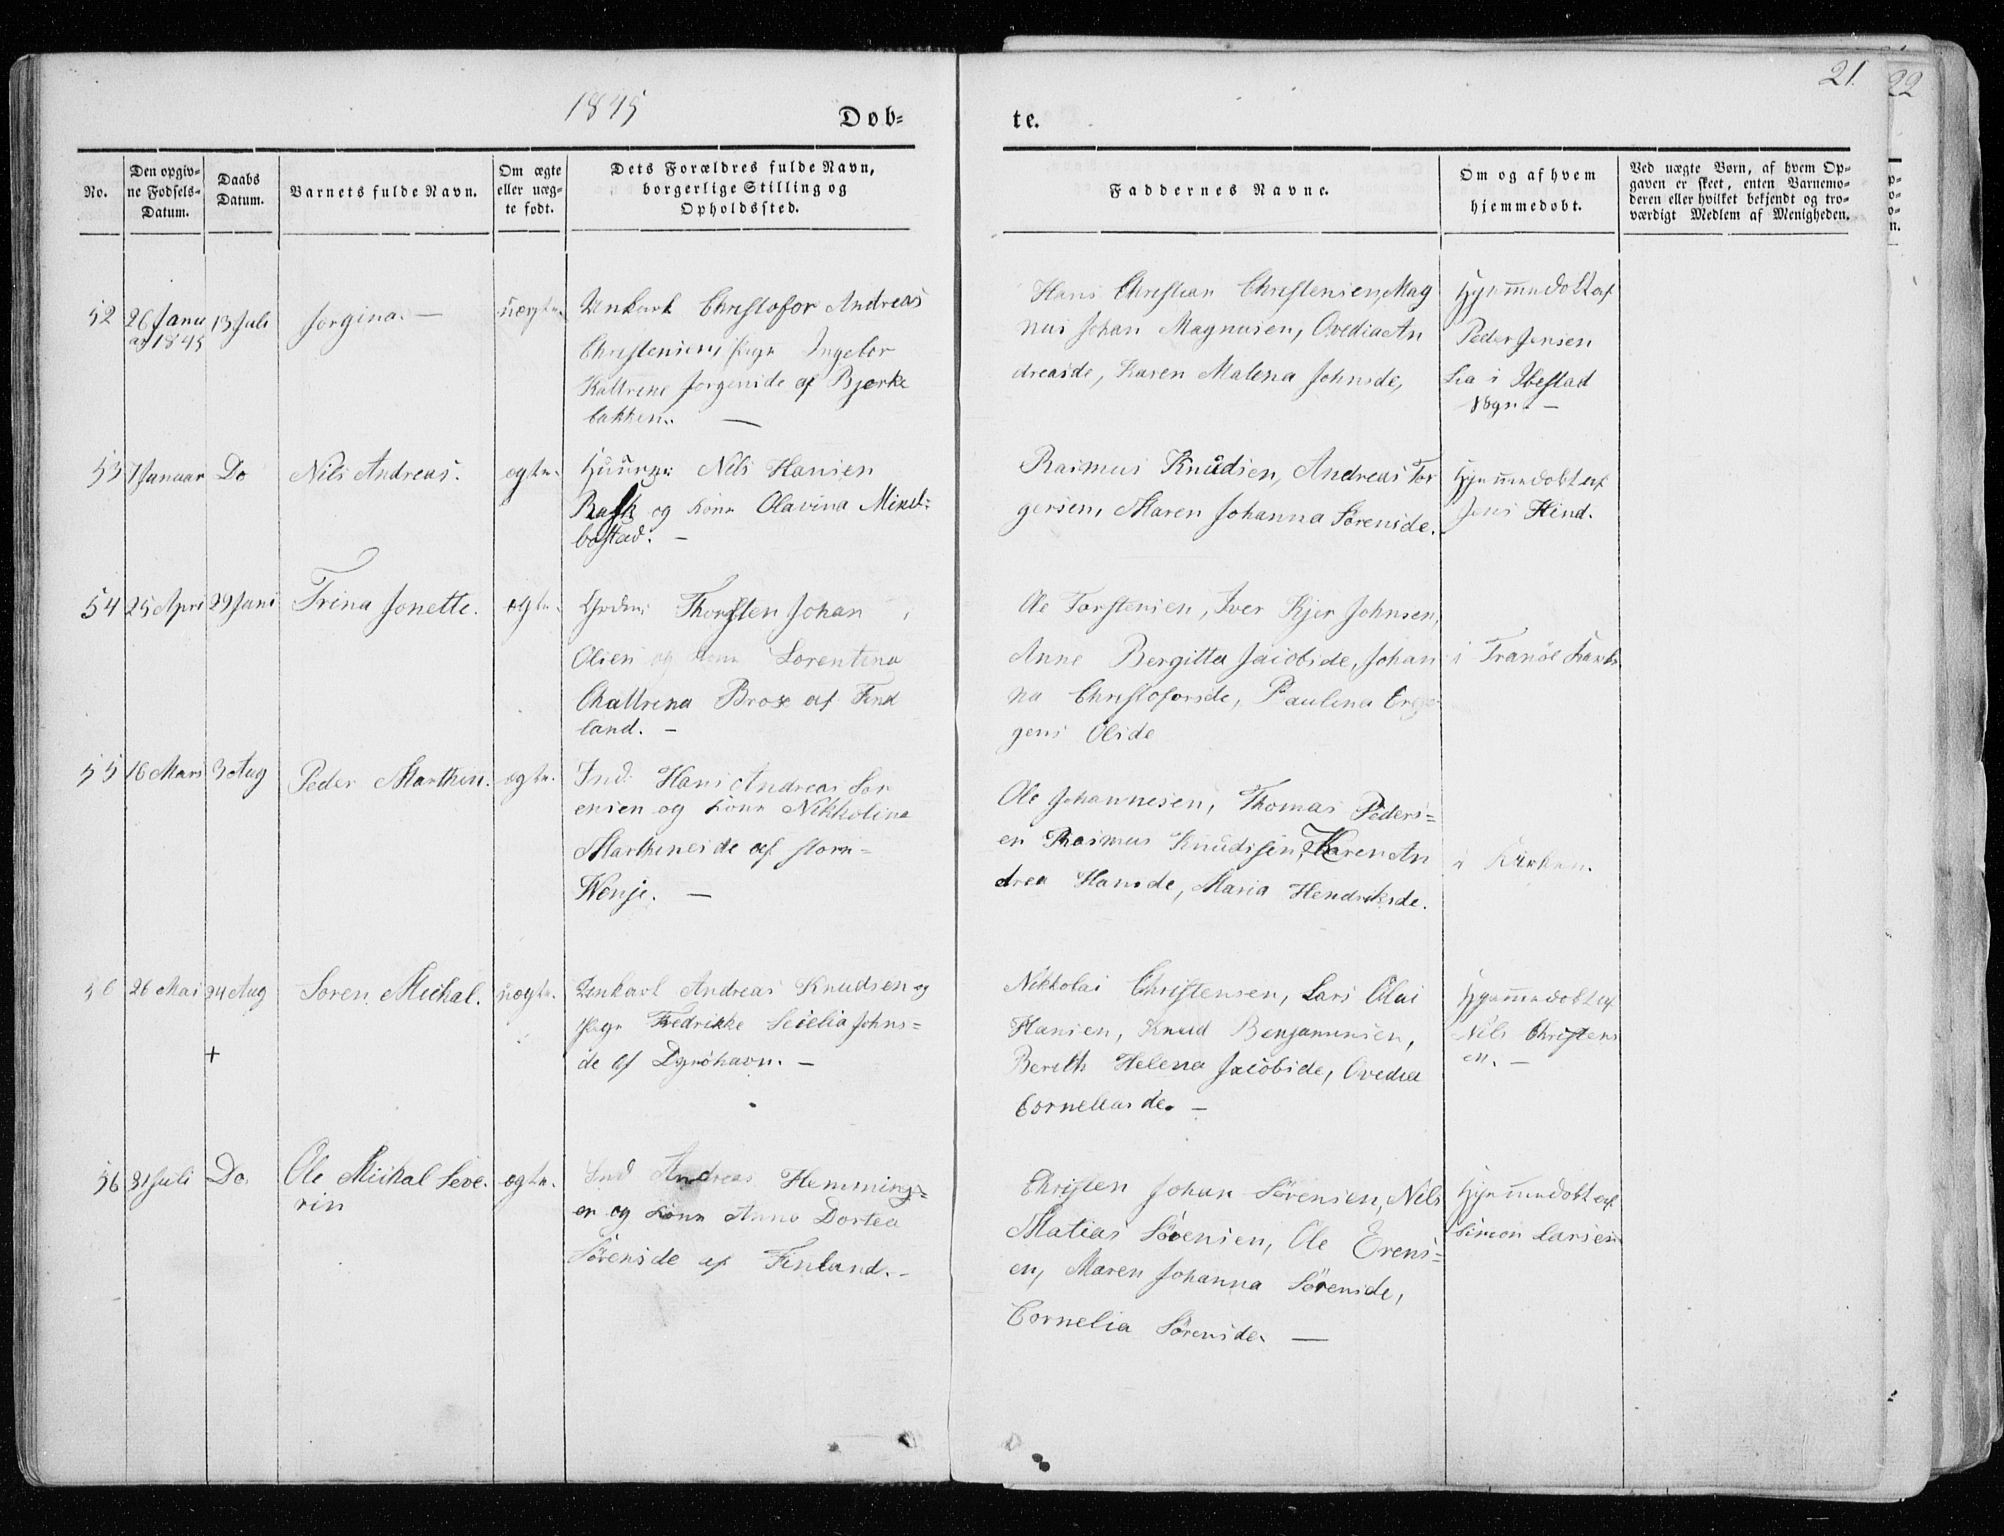 1845
Dob-
te.
21.
22
No.
Den opgiv-
ne Fodsels-
Datum.
Daabs
Datum.
Barnets fulde Navn.
Om ægte
eller uæg-
te født.
Dets Forældres fulde Navn,
borgerlige Stilling og
Opholdssted.
Faddernes Navne.
Om og af hvem
hjemmedobt.
Ved uægte Børn, af hvem Op-
gaven er skeet, enten Barnemo-
deren eller hvilket bekjendt og tro-
værdigt Medlem af Menigheden.
52 26 Janu
ar 1845
13 Juli
Jorgina. —
uægte.
Unkarl Christofor Andreas
Christensen, Pige Ingebor
Kattrine Jorgenide af Bjerke
bakken. —
Hans Christian Christensen, Mag
nus Johan Magnusen, Ovedia An
dreasde, Karen Malena Johnsde,
Hjemmedobt af
Peder Jensen
Lia i Ibestad
Sogn. —
53 7 Januar Do
Nils Andreas.
ægte.
Nils Hansen
Rask og Kone Olavina Mikel-
bostad. —
Rasmus Knudsen, Andreas Tor
gersen, Maren Johanna Sørensde.
Hjemmedobt af
Jens Hind.
54 25 Apri 29 Juni
Trina Jonette.
ægte.
Thorsten Johan
Olsen og Kone Lorentina
Chattrina Brox af Find
land. —
Ole Torstensen, Iver Kjer Johnsen,
Anne Bergitta Jacobsde, Johan
na Christoforsde, Paulina
gens Olsde
i Tranöe Kirke
55 16 Mars 3 Aug
Peder Marthin.
ægte.
Ind. Hans Andreas Sor
ensen og Kone Nikkolina
Marthinesde af stor-
Wenje. —
Ole Johannesen, Thomas Peders-
en Rasmus Knudsen, Karen An
drea Hansde, Maria Hendriksde.
i Kirken.
26 Mai 24 Aug
+
Soren Mickal.
uægte.
Unkarl Andreas Knudsen og
Pige Fredrikke Secelia Johns-
de af Dyröhavn. —
Nikkolai Christensen, Lars Olai
Hansen, Knud Benjaminsen,
Berith Helena Jacobsde, Ovedia
Corneliasde. —
Hjemmedobt af
Nils Christens
en. —
56 31 Juli Do.
Ole Mickal Seve-
rin
ægte.
Ind Andreas Hemmings-
en og Kone Anne Dortea
Sørensde af Finland. —
Christen Johan Sørensen, Nils
Matias Sørensen, Ole Erens-
en, Maren Johanna Sørensde,
Cornelia Sørensde. —
Hjemmedobt af
Simon Larsen